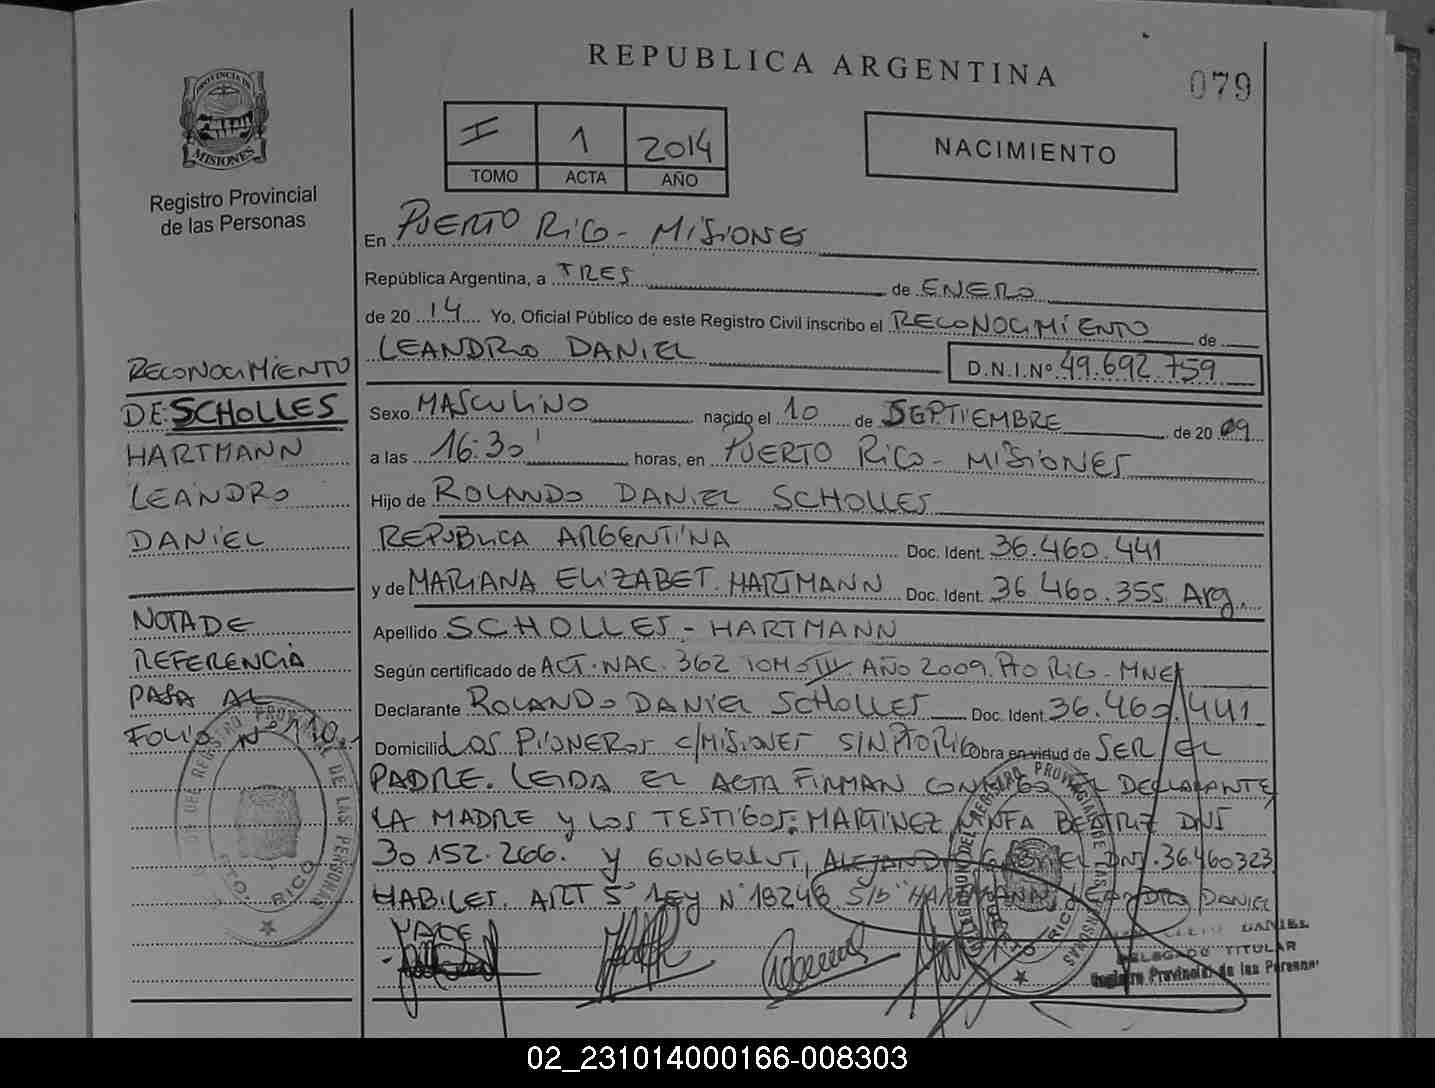 REPUBLICA ARGENTINA
079
PROVINCIA DE
MISIONES
Registro Provincial
de las Personas
I 1 2014
TOMO ACTA AÑO
NACIMIENTO
En PUERTO RICO - MISIONES
República Argentina, a TRES de ENERO
de 20 14 Yo, Oficial Público de este Registro Civil inscribo el RECONOCIMIENTO de
LEANDRO DANIEL D.N.I.Nº 49.692.759
Sexo MASCULINO nacido el 10 de SEPTIEMBRE de 20 09
a las 16:30' horas, en PUERTO RICO - MISIONES
Hijo de ROLANDO DANIEL SCHOLLES
REPUBLICA ARGENTINA Doc. Ident. 36.460.441
y de MARIANA ELIZABET. HARTMANN Doc. Ident. 36.460.355 Arg.
Apellido SCHOLLES - HARTMANN
Según certificado de ACT. NAC. 362 TOMO IV AÑO 2009. PTO RICO - MNES
Declarante ROLANDO DANIEL SCHOLLES Doc. Ident. 36.460.441
Domicilio LOS PIONEROS C/MISIONES S/N PTO RICO obra en virtud de SER EL
PADRE. LEIDA EL ACTA FIRMAN CONMIGO EL DECLARANTE,
LA MADRE Y LOS TESTIGOS: MARTINEZ BEATRIZ DNI
30.152.266. Y ALEJANDRO GABRIEL DNI. 36.460323
HABILES. ART 5º LEY Nº 18248 S/B "HARTMANN, LEANDRO DANIEL
VALE
RECONOCIMIENTO
DE: SCHOLLES
HARTMANN
LEANDRO
DANIEL
NOTA DE
REFERENCIA
PASA AL
FOLIO Nº 110
DEL REGISTRO PROVINCIAL DE LAS PERSONAS
PTO. RICO
DEL REGISTRO PROVINCIAL DE LAS PERSONAS
PTO. RICO
DANIEL
DELEGADO TITULAR
Registro Provincial de las Personas
02_231014000166-008303